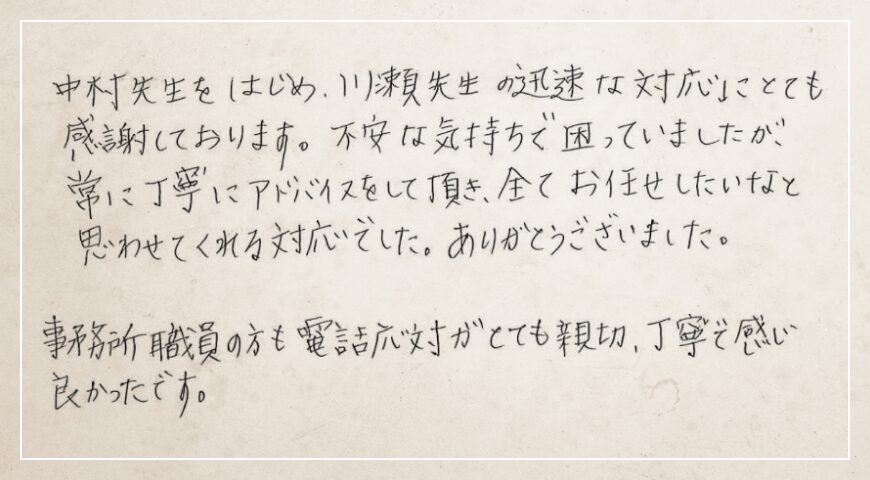 中村先生をはじめ、川瀬先生の迅速な対応にとても
感謝しております。不安な気持ちで困っていましたが、
常に丁寧にアドバイスをして頂き、全てお任せしたいなと
思わせてくれる対応でした。ありがとうございました。
事務所職員の方も電話応対がとても親切、丁寧で感じ
良かったです。